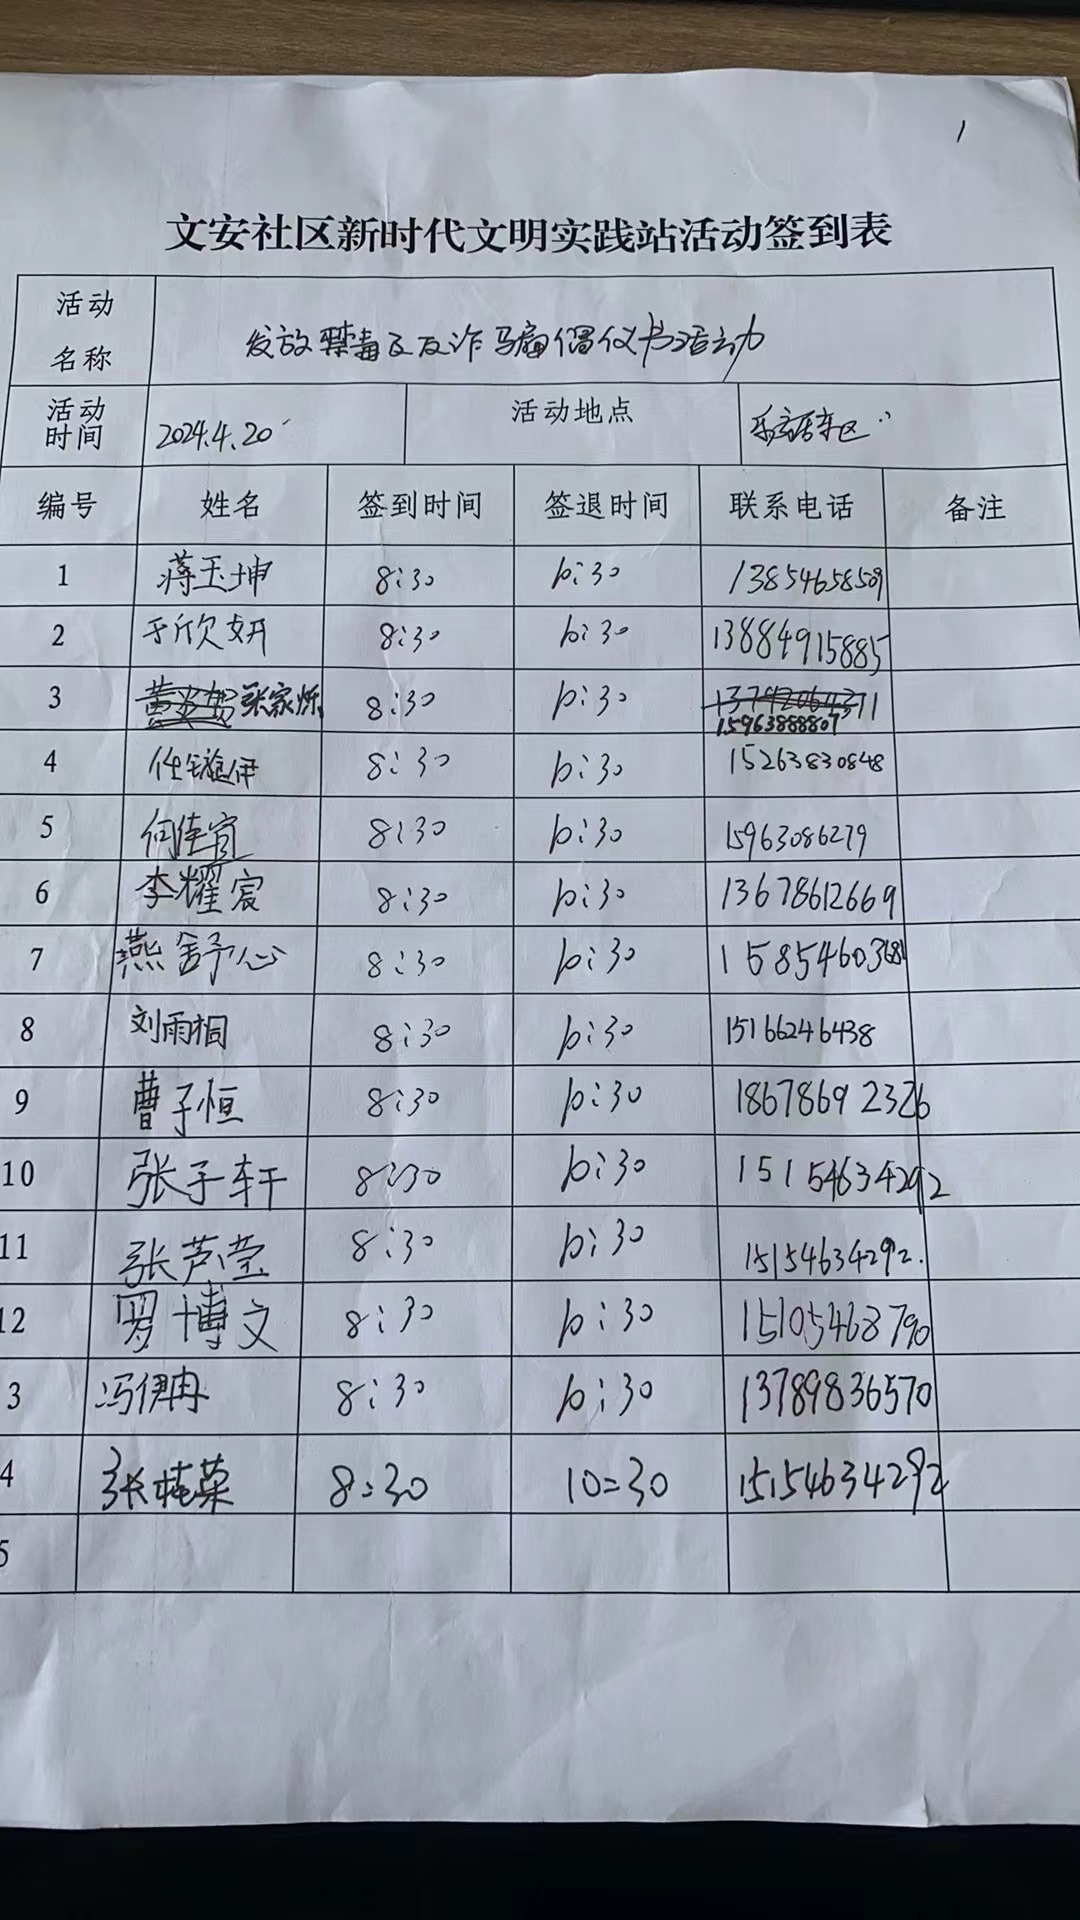 1
文安社区新时代文明实践站活动签到表
活动名称 发放禁毒及反诈骗倡仪书活动
活动时间 2024.4.20 活动地点
编号 姓名 签到时间 签退时间 联系电话 备注
1 蒋玉坤 8:30 10:30 13854658509
2 于欣妍 8:30 10:30 13884915885
3 张家烁 8:30 10:30 15963888807
4 任镟伊 8:30 10:30 15263830848
5 何佳宜 8:30 10:30 15963086279
6 李耀宸 8:30 10:30 13678612669
7 燕舒心 8:30 10:30
8 刘雨桐 8:30 10:30 15166246438
9 曹子恒 8:30 10:30 18678692326
10 张子轩 8:30 10:30 15154634292
11 张芦莹 8:30 10:30 15154634292.
12 罗博文 8:30 10:30 15105468790
3 冯伊冉 8:30 10:30 13789836570
4 张桂荣 8:30 10:30 15154634292
5